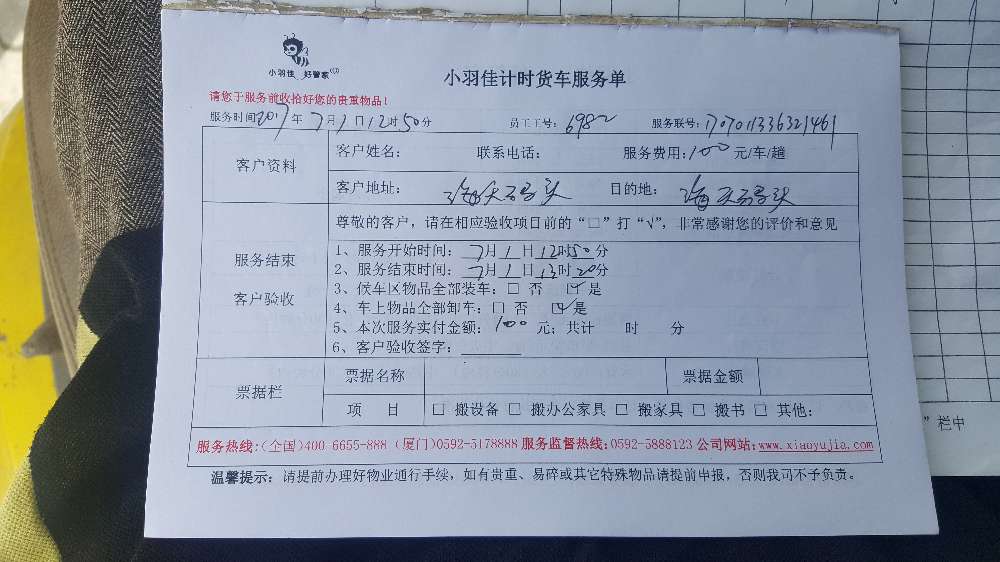 小羽佳 好管家
小羽佳计时货车服务单
请您于服务前收拾好您的贵重物品！
服务时间2017年7月1日12时50分 员工工号：6982 服务联号：1707011336321461
客户资料
客户姓名： 联系电话： 服务费用：100元/车/趟
客户地址：海天码头 目的地：海天码头
尊敬的客户，请在相应验收项目前的“□”打“√”，非常感谢您的评价和意见
服务结束
客户验收
1、服务开始时间：7月1日12时50分
2、服务结束时间：7月1日13时20分
3、候车区物品全部装车：□ 否 ☑是
4、车上物品全部卸车：□ 否 ☑是
5、本次服务实付金额：100元；共计 时 分
6、客户验收签字：
票据栏
票据名称 票据金额
项 目 □ 搬设备 □ 搬办公家具 □ 搬家具 □ 搬书 □ 其他：
服务热线：(全国)400-6655-888 (厦门)0592-5178888 服务监督热线：0592-5888123 公司网站：www.xiaoyujia.com
温馨提示：请提前办理好物业通行手续，如有贵重、易碎或其它特殊物品请提前申报，否则我司不予负责。
”栏中